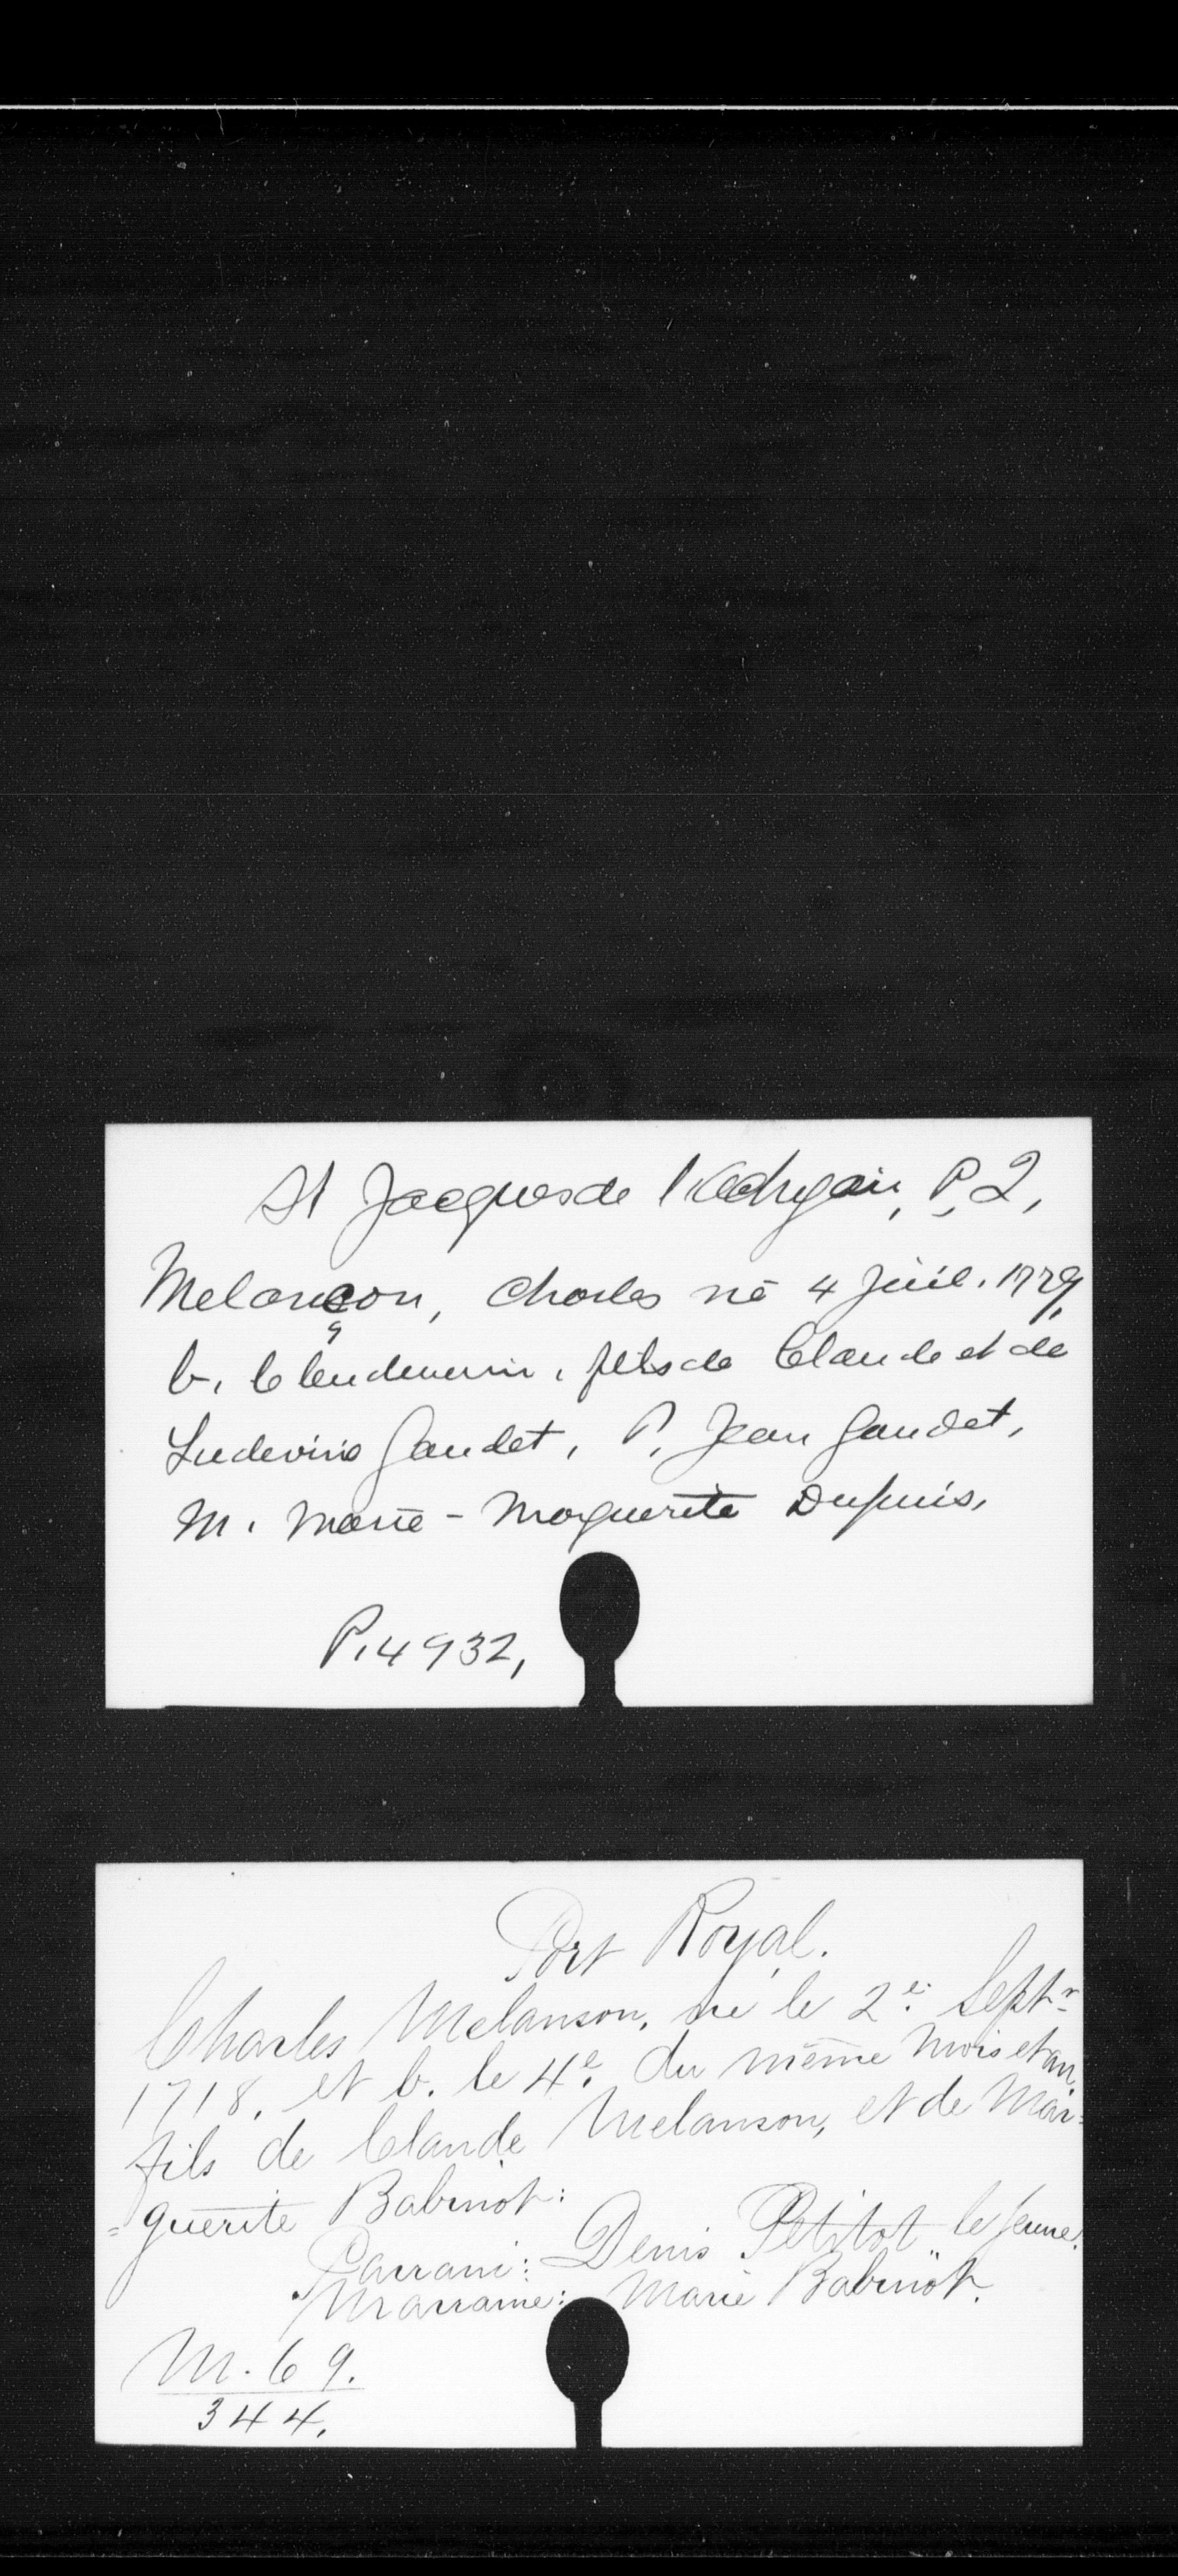 St Jacques de l'Achigan, P.Q,
Melançon, Charles né 4 Juil. 1779,
b. le lendemain, fils de Claude et de
Ludevine Gaudet, P. Jean Gaudet,
M. Marie-Marguerite Dupuis,
P.4932,
Port Royal.
Charles Melanson, né le 2e. Septr
1718. et b. le 4e. du même mois et an.
fils de Claude Melanson, et de Mar=
=guerite Babinot:
Parrain: Denis Petitot le jeune.
Marraine: Marie Babinot.
M. 69.
344.